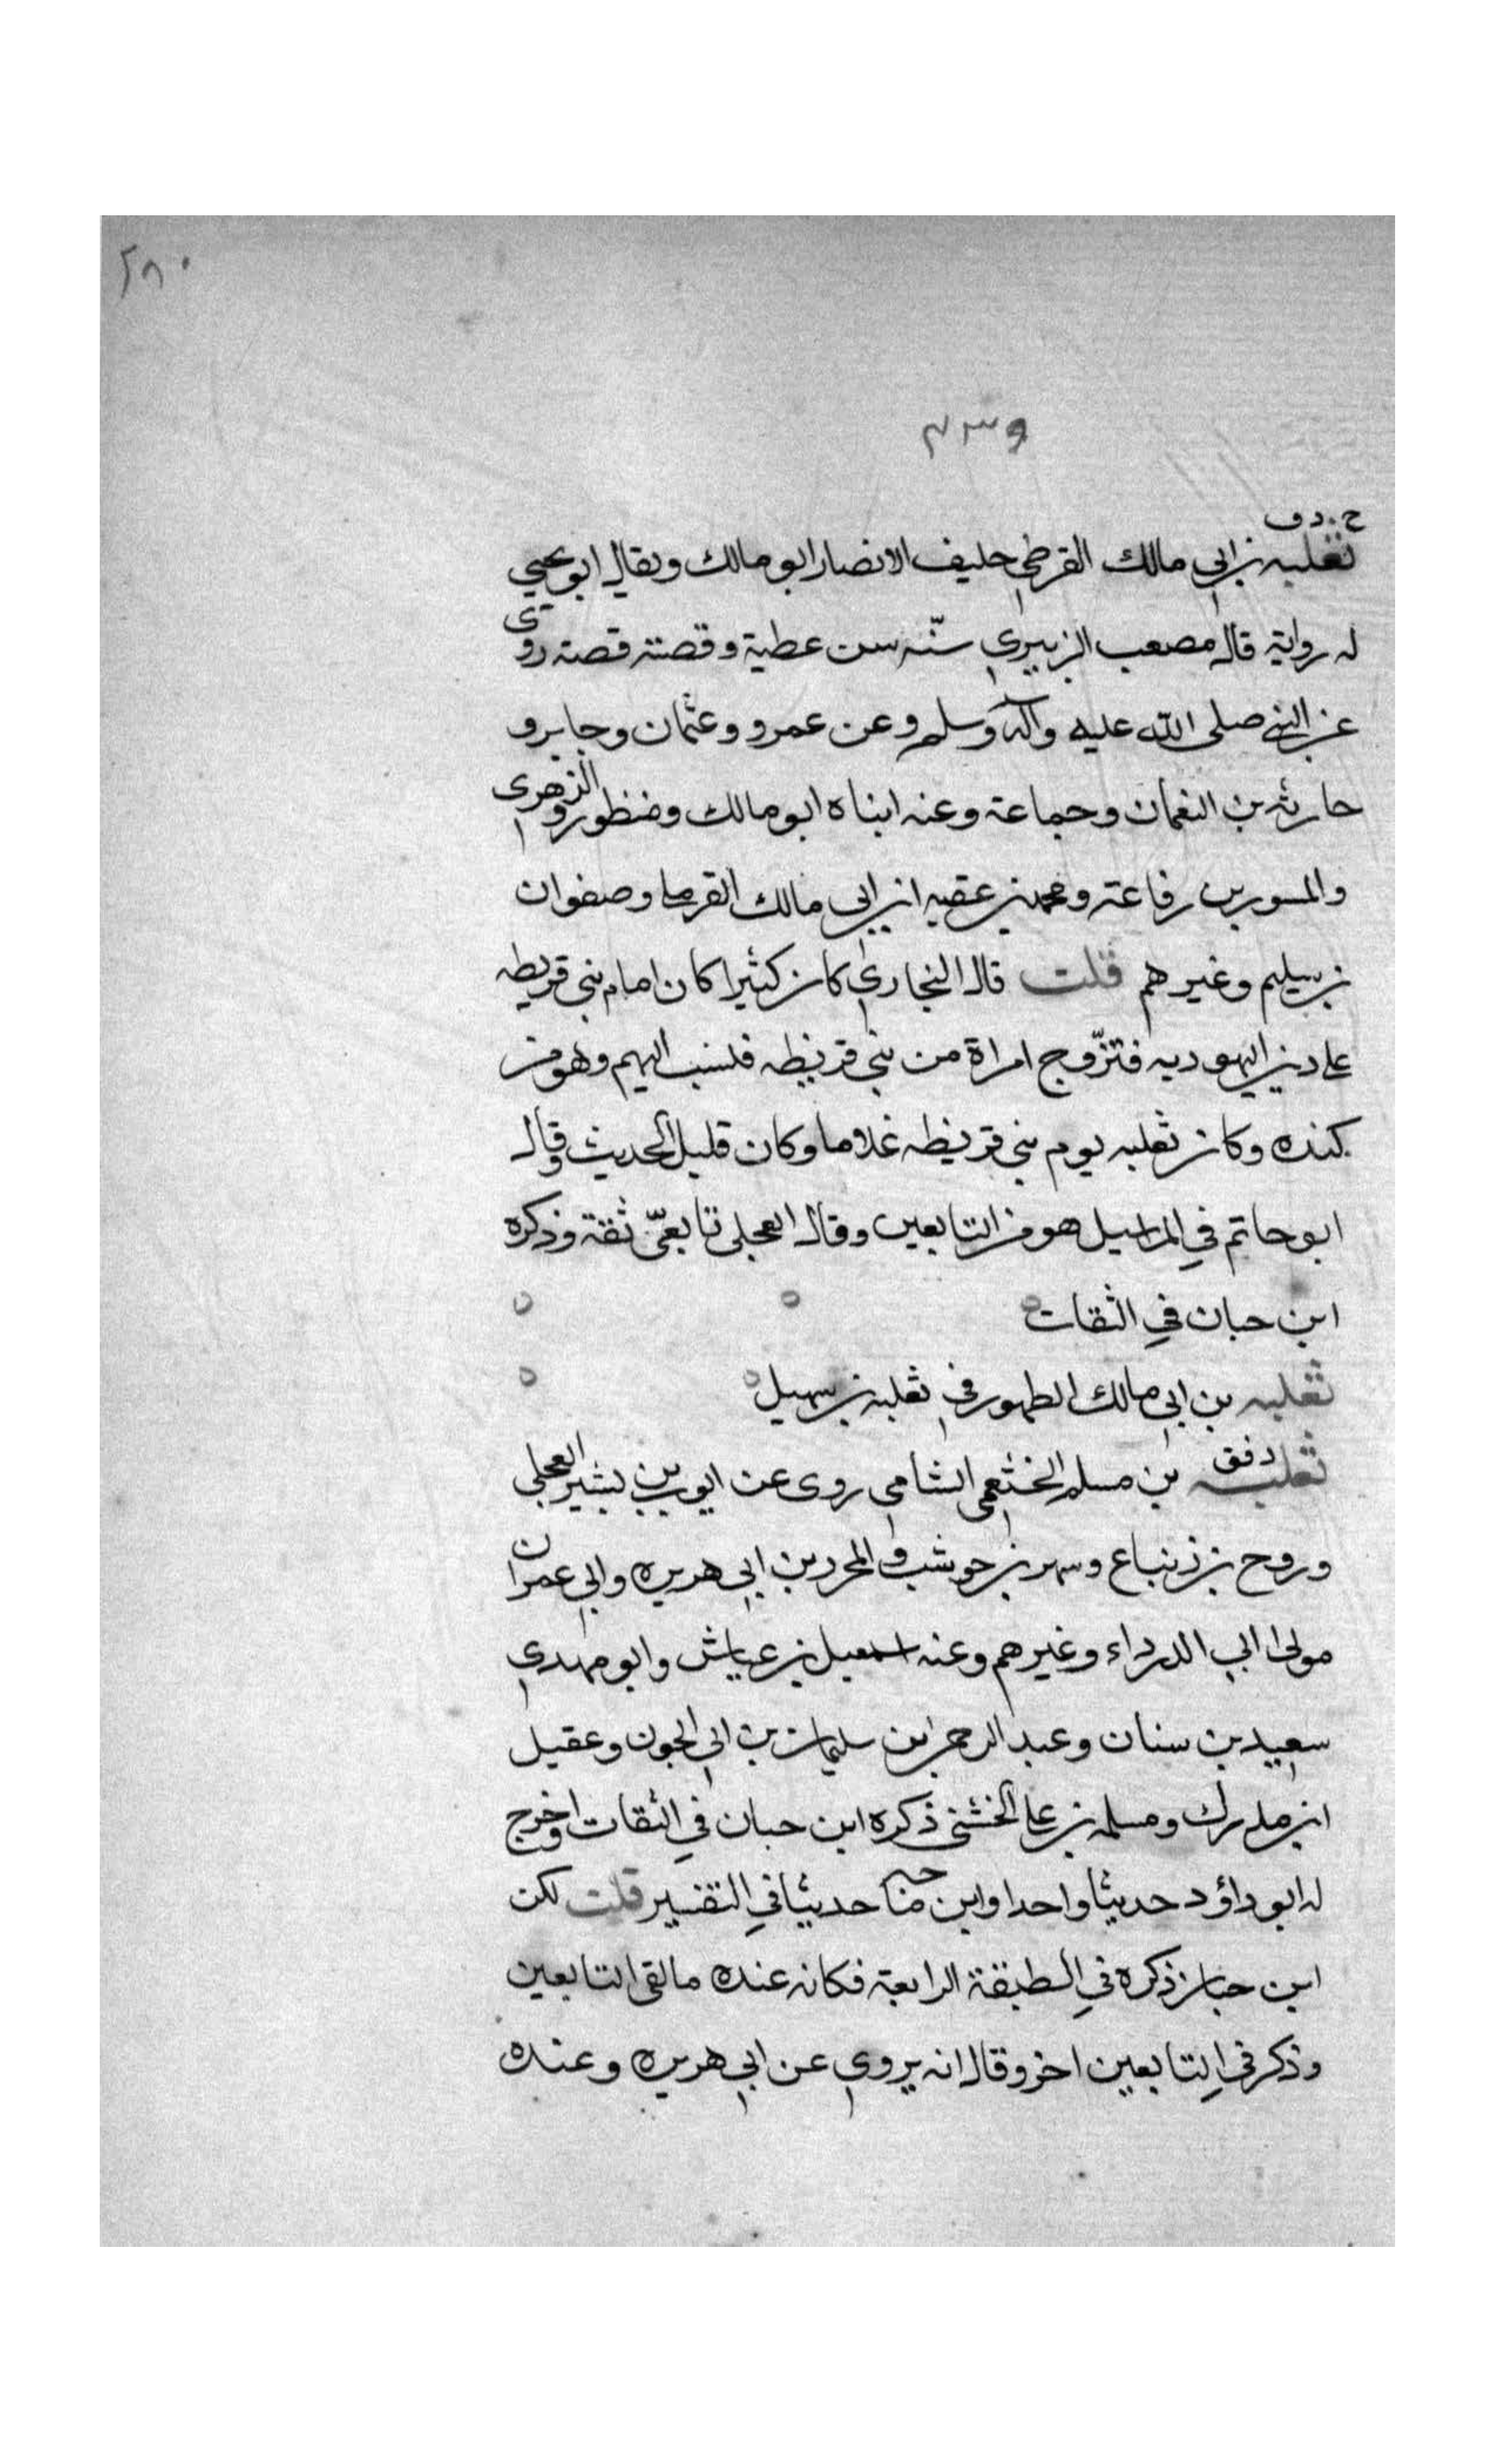 ٢٨٠
٤٣٩
خ . د ق
ثعلبه بن ابي مالك القرظي حليف الانصار ابو مالك ويقال ابو يحيي
له رواية قال مصعب الزبيري سنّه سن عطية وقصته قصته روى
عن النبي صلى الله عليه وآله وسلم وعن عمرو وعثمان وجابر و
حارثه بن النعمان وجماعة وعنه ابناه ابو مالك ومنظور والزهرى
والمسور بن رفاعة ومحمد بن عقبه ابن ابى مالك القرظى وصفوان
بن سليم وغيرهم قلت قال البخاري كان كثيرا كان امام بني قريظه
على دين اليهوديه فتزّوج امراة من بني قريظه فنسب اليهم وهو من
كنده وكان ثعلبه يوم بني قريظه غلاما وكان قليل الحديث وقال
ابو حاتم في المراسيل هو من التابعين وقال العجلى تابعىّ ثقة وذكره
ابن حبان في الثقات
ثعلبه بن ابي مالك الطهور في ثعلبه بن سهيل
ثعلبه د فق بن مسلم الخثعمي الشامي روى عن ايوب بن بشير العجلى
وروح بن زنباع وشهر بن حوشب والمحرر بن ابي هريره وابي عمران
مولى ابي الدرداء وغيرهم وعنه اسمعيل بن عياش وابو مهدي
سعيد بن سنان وعبد الرحمن بن سليمان بن ابي الجون وعقيل
ابن مدرك ومسلمه بن على الخشني ذكره ابن حبان في الثقات واخرج
له ابو داؤد حديثا واحدا وابن ماجه حديثا في التفسير قلت لكن
ابن حبان ذكره في الطبقة الرابعة فكانه عنده ما لقى التابعين
وذكر في التابعين اخر وقال انه يروي عن ابي هريره وعنده